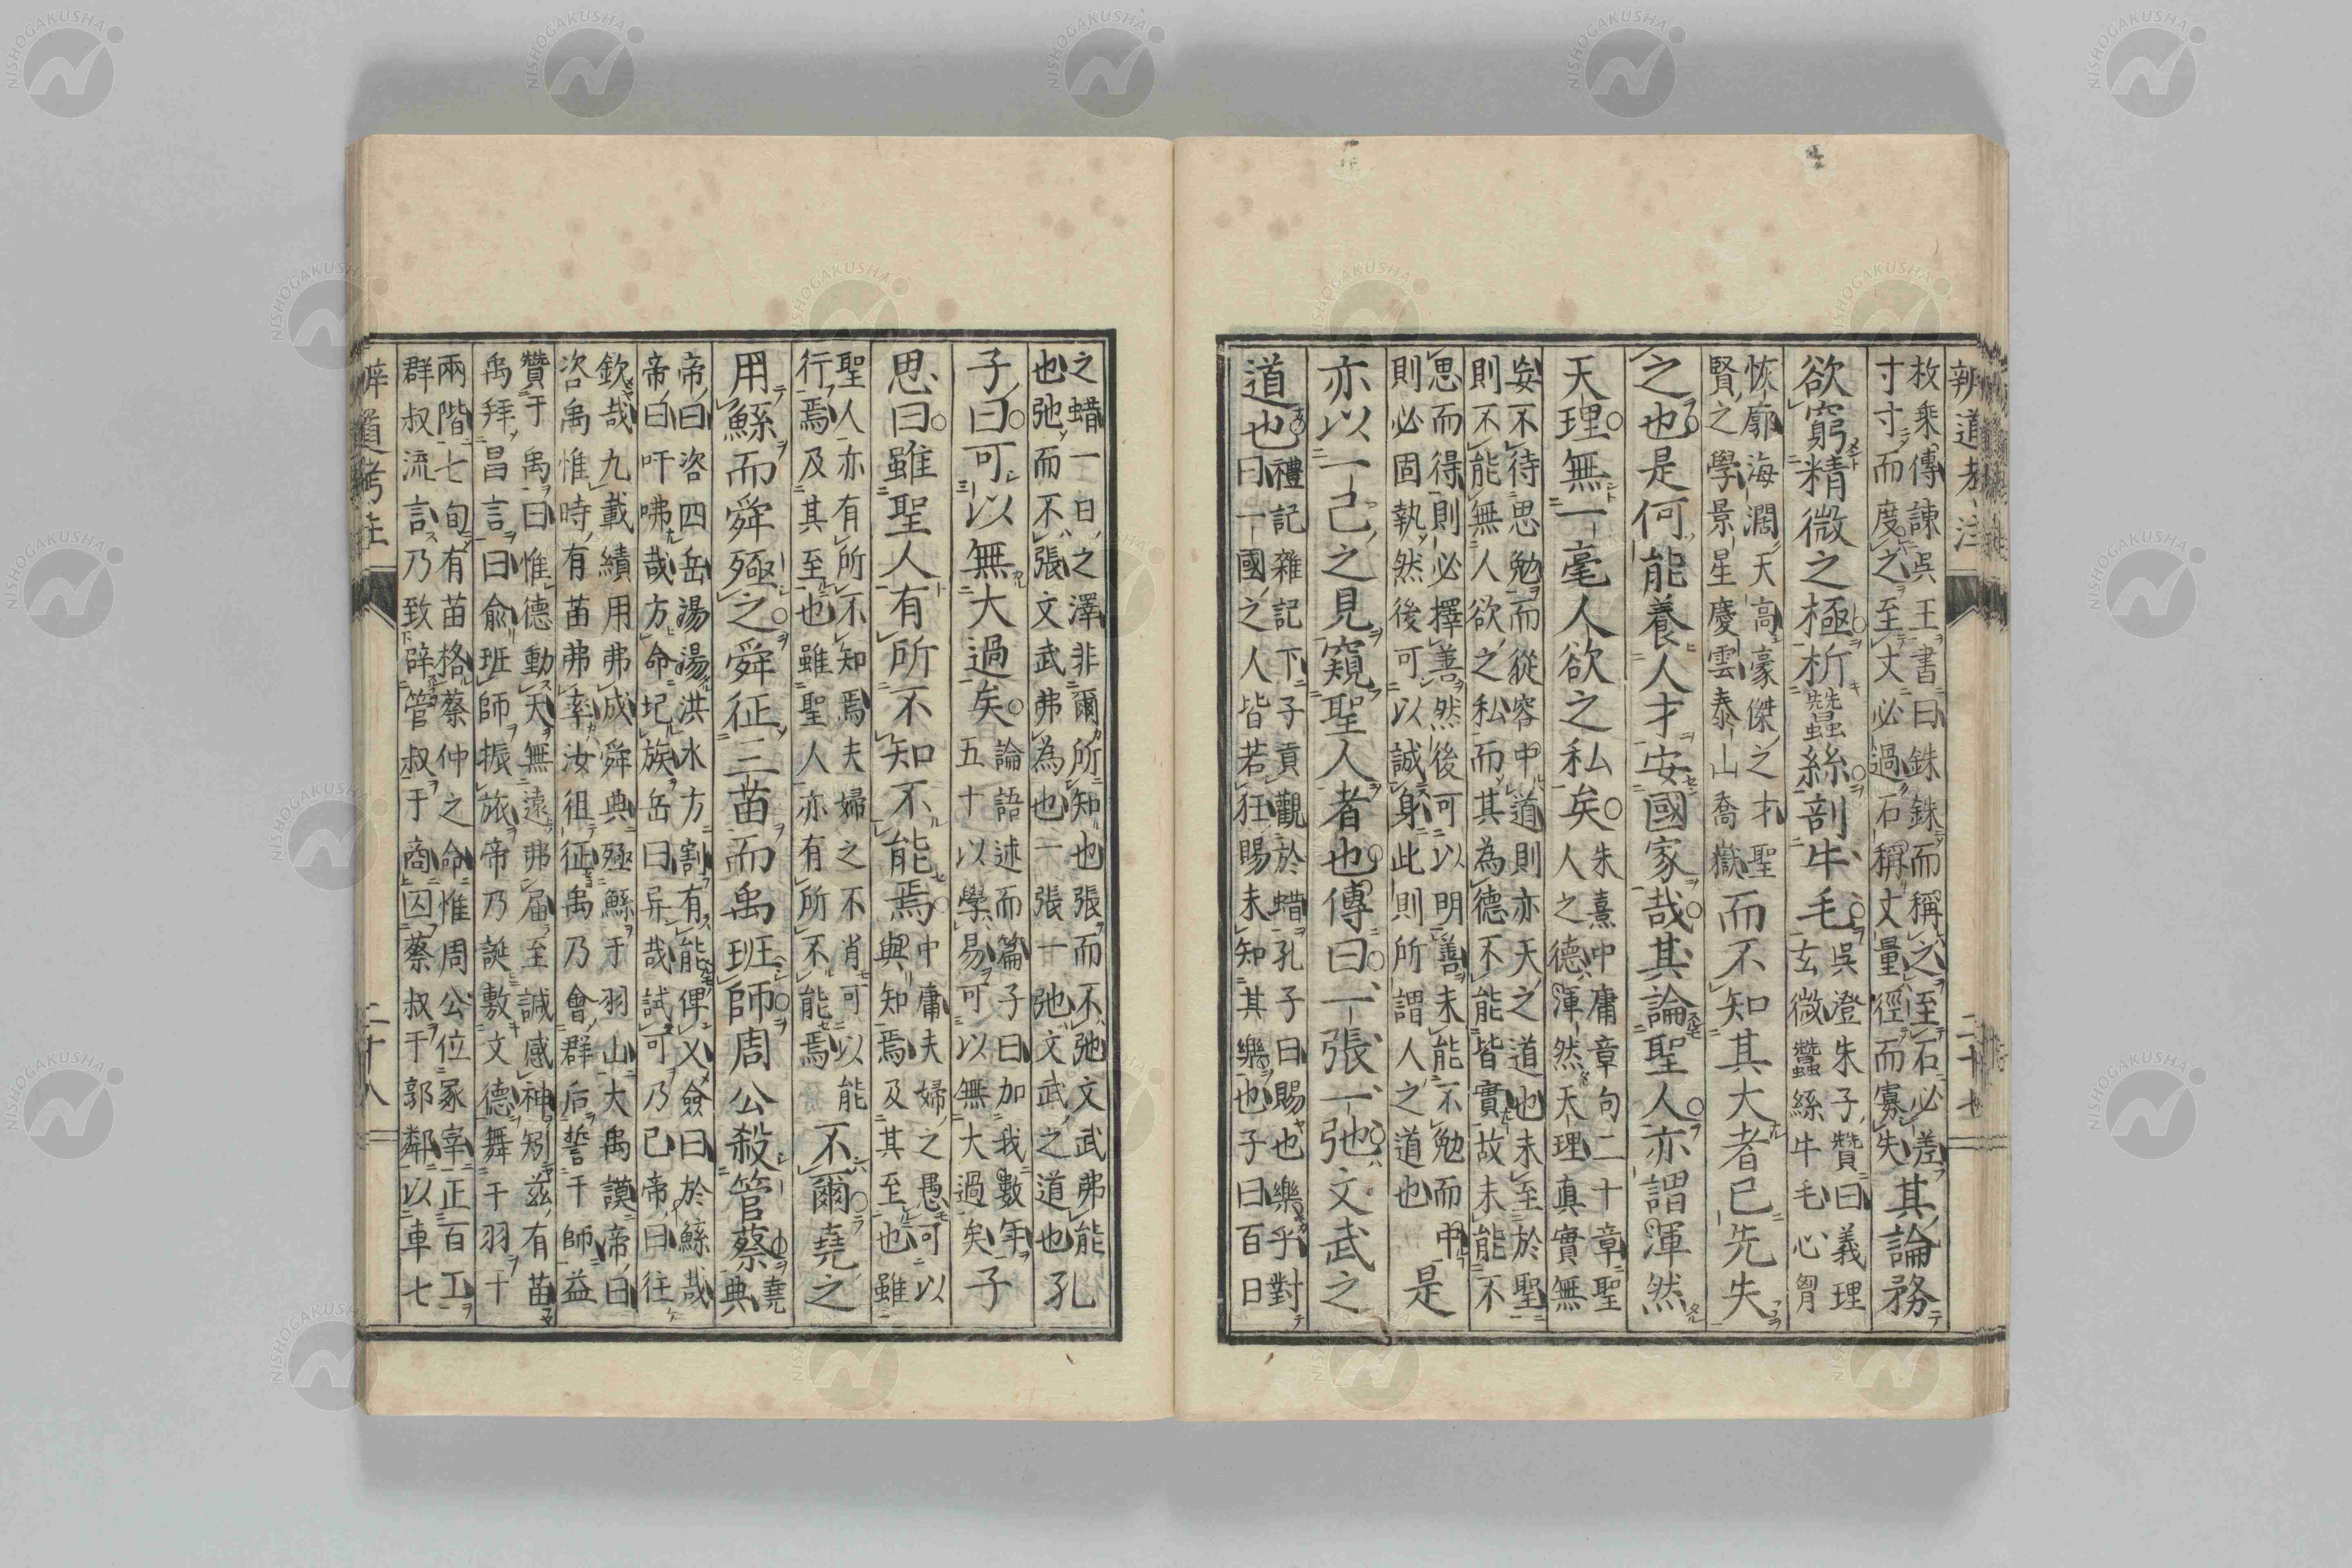 辨道考注 二十七
枚乘傳諫吳王書曰銖銖而稱之至石必差
寸寸而度之至丈必過石稱丈量徑而寡失
其論務
欲窮精微之極析蠶絲剖牛毛
吳澄朱子贊曰義理
玄微蠶絲牛毛心胷
恢廓海濶天高豪傑之才聖
賢之學景星慶雲泰山喬嶽
而不知其大者已先失
之也是何能養人才安國家哉其論聖人亦謂渾然
天理無一毫人欲之私矣
朱熹中庸章句二十章聖
人之德渾然天理真實無
妄不待思勉而從容中道則亦天之道也未至於聖
則不能無人欲之私而其為德不能皆實故未能不
思而得則必擇善然後可以明善未能不勉而中
則必固執然後可以誠身此則所謂人之道也
是
亦以一己之見窺聖人者也傳曰一張一弛文武之
道也
禮記雜記下子貢觀於蜡孔子曰賜也樂乎對
曰一國之人皆若狂賜未知其樂也子曰百日
之蜡一日之澤非爾所知也張而不弛文武弗能
也弛而不張文武弗為也一張一弛文武之道也
孔
子曰可以無大過矣
論語述而篇子曰加我數年
五十以學易可以無大過矣
子
思曰雖聖人有所不知不能焉
中庸夫婦之愚可以
與知焉及其至也雖
聖人亦有所不知焉夫婦之不肖可以能
行焉及其至也雖聖人亦有所不能焉
不爾堯之
用鯀而舜殛之舜征三苗而禹班師周公殺管蔡
堯
典
帝曰咨四岳湯湯洪水方割有能俾乂僉曰於鯀哉
帝曰吁咈哉方命圮族岳曰异哉試可乃已帝曰往
欽哉九載績用弗成舜典殛鯀于羽山大禹謨帝曰
咨禹惟時有苗弗率汝徂征禹乃會群后誓于師益
贊于禹曰惟德動天無遠弗届至諴感神矧茲有苗
禹拜昌言曰俞班師振旅帝乃誕敷文德舞干羽于
兩階七旬有苗格蔡仲之命惟周公位冢宰正百工
群叔流言乃致辟管叔于商囚蔡叔于郭鄰以車七
辨道考注 二十八
NISHOGAKUSHA